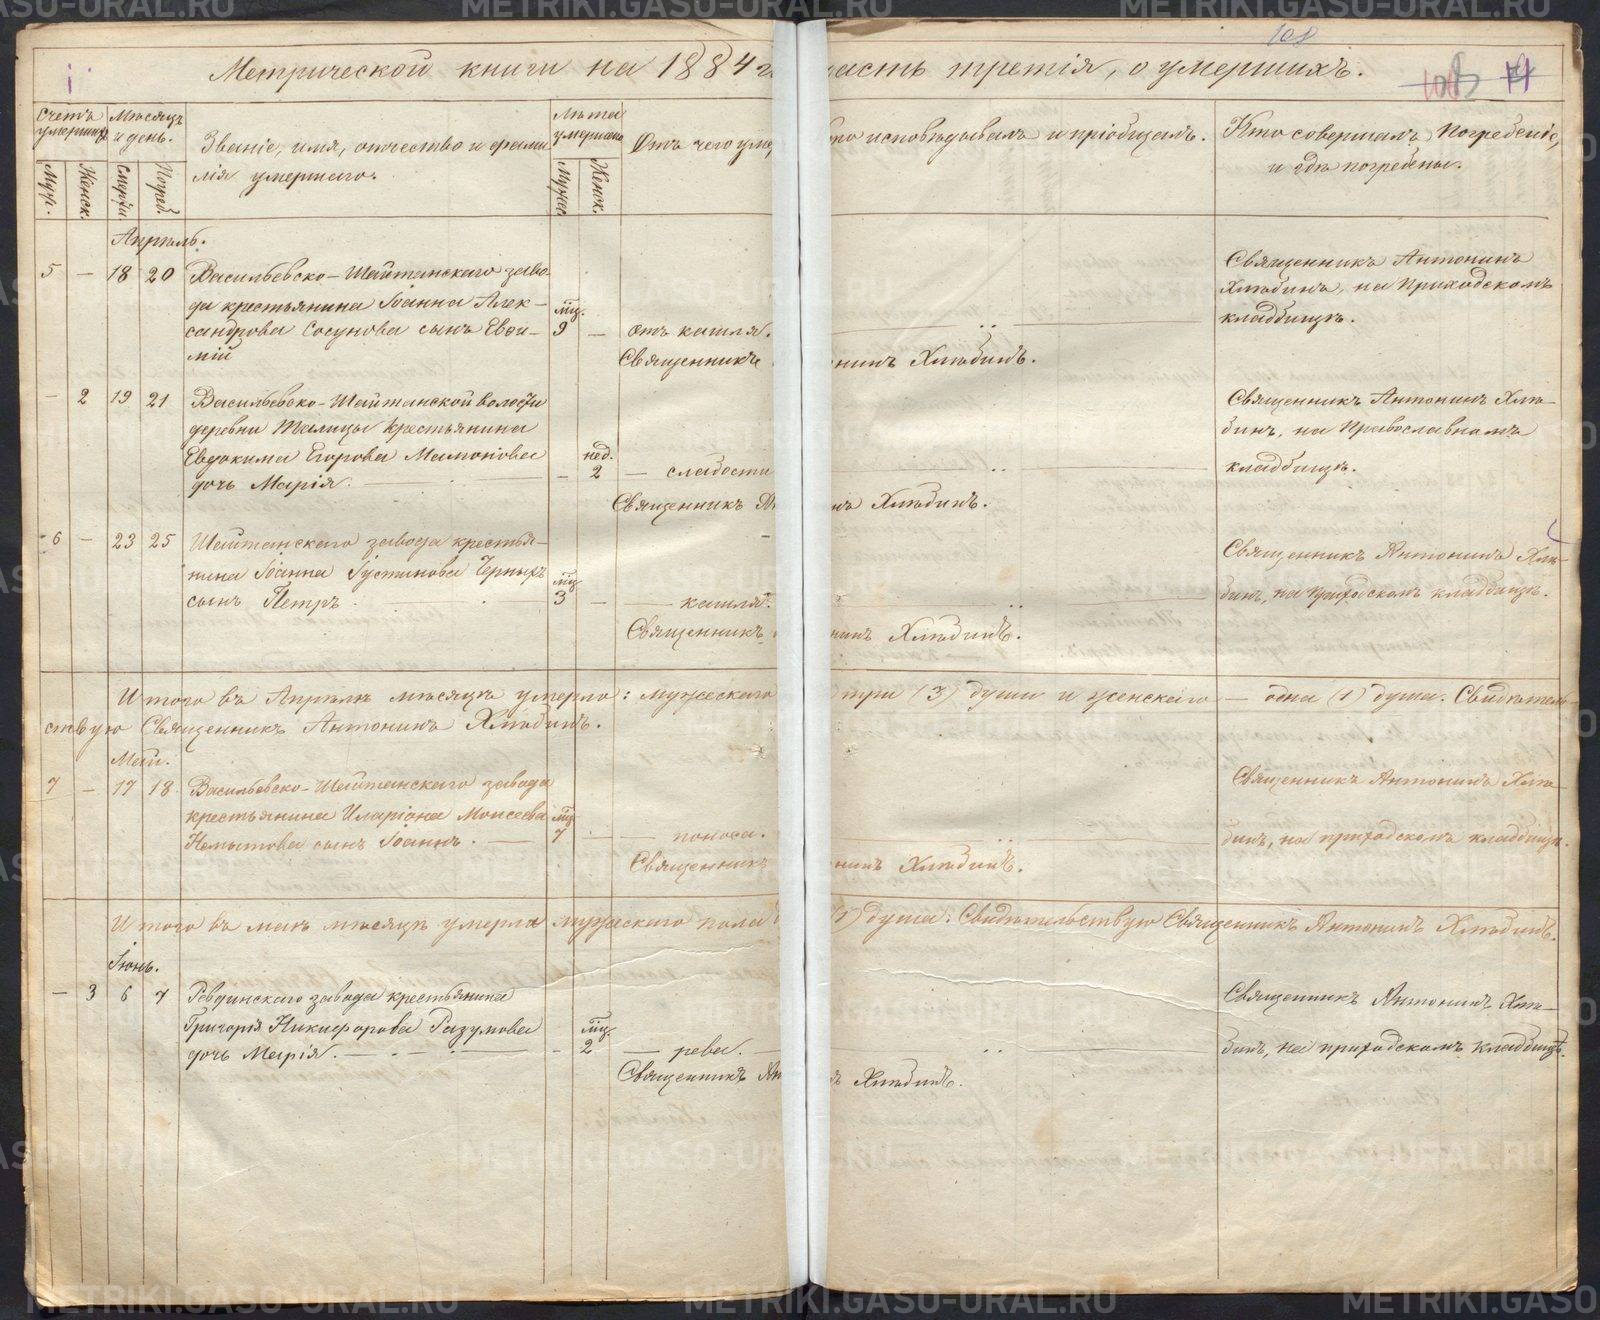 METRIKI.GASO-URAL.RU METRIKI.GASO-URAL.RU
108
Метрической книги на 1884 г часть третія, о умершихъ.
108
Счетъ умершихъ
Мѣсяцъ и день.
Званіе, имя, отчество и фами
лія умершаго.
Лѣта умершаго
Отъ чего умер
кто исповѣдывалъ и пріобщалъ.
Кто совершалъ погребеніе,
и гдѣ погребены.
Муж.
Женск.
Смерти
Погреб.
Мужес.
Женск.
Апрѣль.
5 — 18 20 Васильевско-Шайтанскаго заво
да крестьянина Іоанна Алек-
сандрова Сосунова сынъ Евѳи-
мій
мц.
9 — Отъ кашля.
Священникъ нинъ Хлѣбинъ.
Священникъ Антонинъ
Хлѣбинъ, на Приходскомъ
кладбищѣ.
— 2 19 21 Васильевско-Шайтанской волости
деревни Талицы крестьянина
Евдокима Егорова Мамонова
дочь Марія.
нед.
— 2 — слабости
Священникъ Ан нъ Хлѣбинъ.
Священникъ Антонинъ Хлѣ-
бинъ, на Православномъ
кладбищѣ.
6 — 23 25 Шайтанскаго завода крестья-
нина Іоанна Іустинова Черныхъ
сынъ Петръ.
мц.
3 — — кашля.
Священникъ нинъ Хлѣбинъ.
Священникъ Антонинъ Хлѣ-
бинъ, на приходскомъ кладбищѣ.
Итого въ Апрѣлѣ мѣсяцѣ умерло: мужескаго три (3) души и женскаго — одна (1) душа. Свидѣтель-
ствую Священникъ Антонинъ Хлѣбинъ.
Май.
7 — 17 18 Васильевско-Шайтанскаго завода
крестьянина Иларіона Моисеева
сынъ Іоаннъ.
мц.
7 — — поноса.
Священникъ нинъ Хлѣбинъ.
Священникъ Антонинъ Хлѣ-
бинъ, на приходскомъ кладбищѣ.
Итого въ маѣ мѣсяцѣ умерла мужескаго пола (1) душа. Свидѣтельствую Священникъ Антонинъ Хлѣбинъ.
Іюнь.
— 3 6 7 Ревдинскаго завода крестьянина
Григорія Никифорова Разумова
дочь Марія.
мц.
— 2 — рева.
Священникъ Ан ъ Хлѣбинъ.
Священникъ Антонинъ Хлѣ-
бинъ, на приходскомъ кладбищѣ.
METRIKI.GASO-URAL.RU METRIKI.GASO-URAL.RU METRIKI.GASO